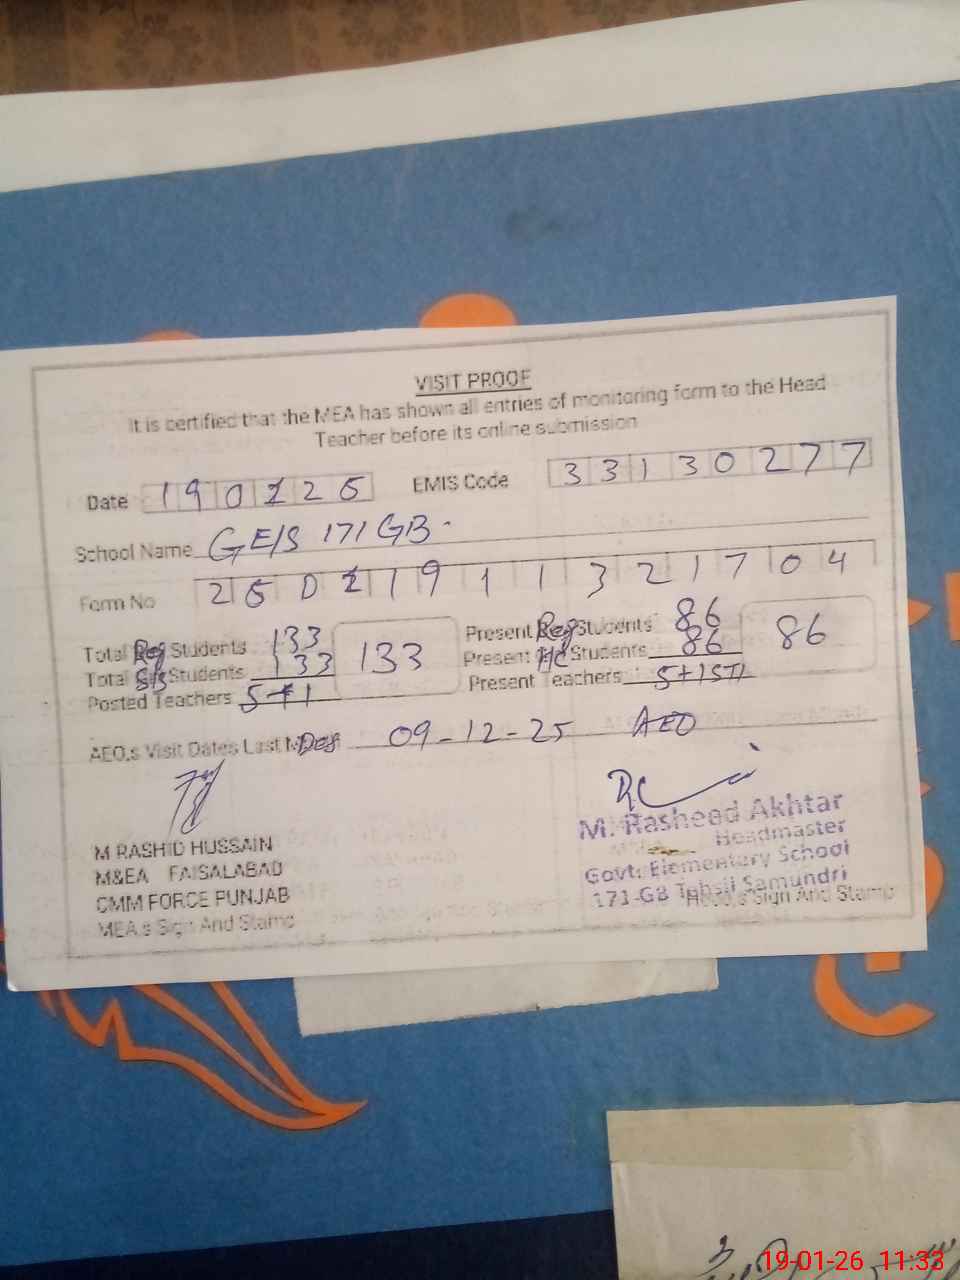 VISIT PROOF
It is certified that the MEA has shown all entries of monitoring form to the Head
Teacher before its online submission
Date 190126 EMIS Code 33130277
School Name GE/S 171 GB
Form No 26011911321704
Total Reg Students 133 133 Present Reg Students 86 86
Total S/s Students 133 Present H/C Students 86
Posted Teachers 5+1 Present Teachers 5+1
AEO,s Visit Dates Last 09-12-25 AEO
M RASHID HUSSAIN
M&EA FAISALABAD
CMM FORCE PUNJAB
MEA,s Sign And Stamp
M. Rasheed Akhtar
Headmaster
Govt: Elementary School
171-GB Tehsil Samundri
Head,s Sign And Stamp
19-01-26 11:33